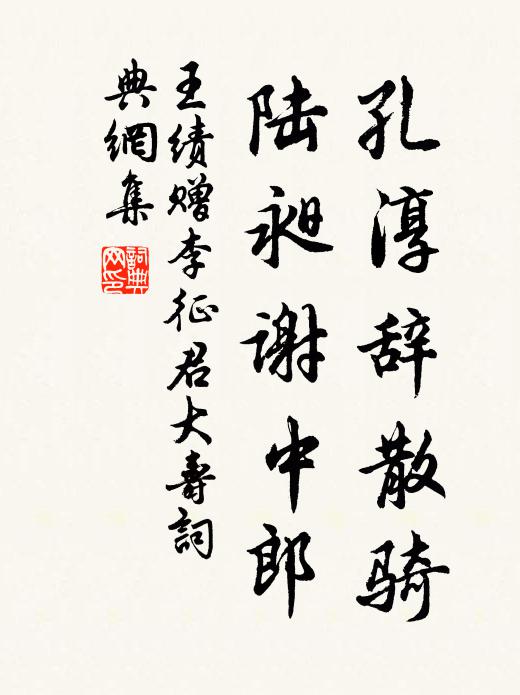 孔淳辞散骑
陆昶谢中郎
王绩赠李征君大壽詞
典網集
詞典网印